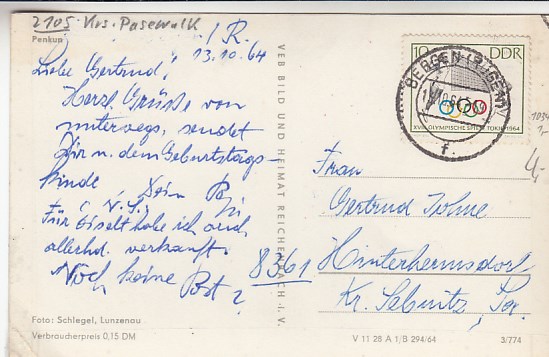 2105 Krs. Pasewalk
Penkun
13.10.64
Liebe Gertrud!
Herzl. Grüße von
unterwegs, sendet
Dir u. dem Geburtstags-
kinde Dein
Für Giselt habe ich auch
allerhd. verkauft.
Noch keine Post?
Foto: Schlegel, Lunzenau
Verbraucherpreis 0,15 DM
VEB BILD UND HEIMAT REICHENBACH i. V.
10 DDR
XVIII. OLYMPISCHE SPIELE TOKIO 1964
BERGEN (RÜGEN)
f
Frau
Gertrud
8361 Hinterhermsdorf
Kr. Sebnitz,
V 11 28 A 1/B 294/64
3/774
4,-